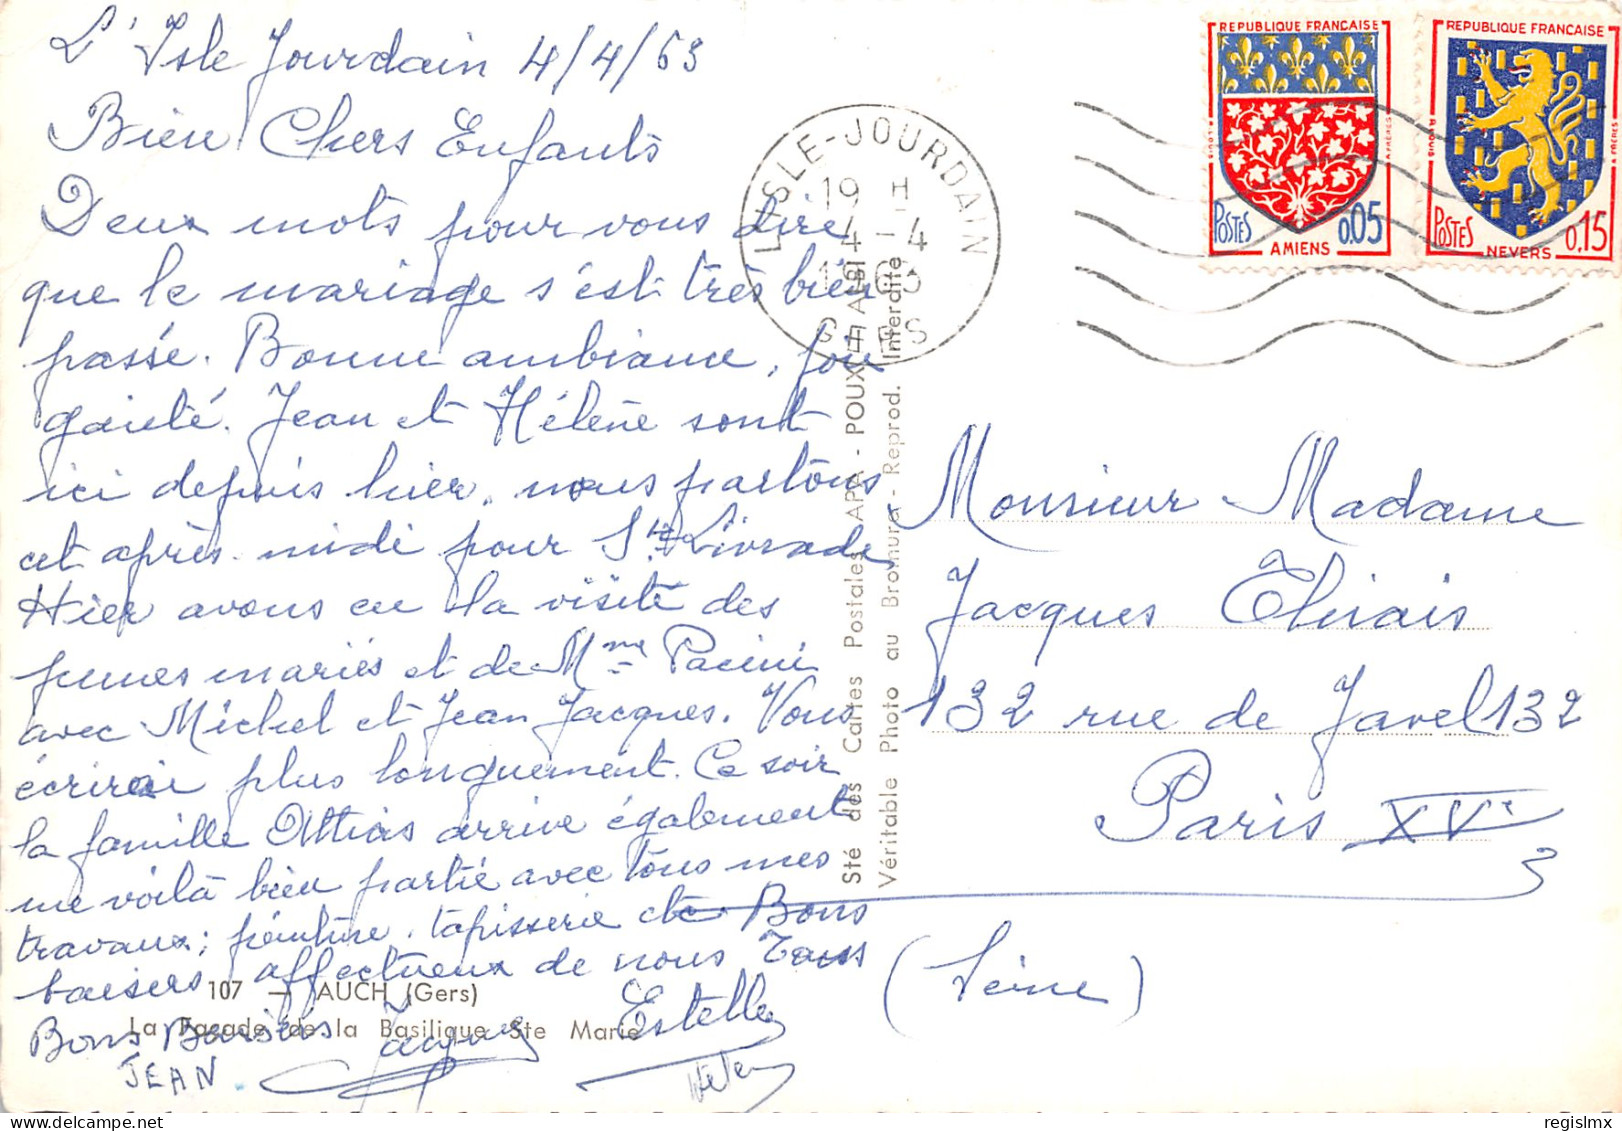 L'Isle Jourdain 4/4/63
Bien Chers Enfants
Deux mots pour vous dire
que le mariage s'est très bien
passé. Bonne ambiance, fou
gaieté. Jean et Hélène sont
ici depuis hier, nous partons
cet après-midi pour Ste Livrade
Hier avons eu la visite des
jeunes mariés et de Mme Pacini
avec Michel et Jean Jacques. Vous
écrirai plus longuement. Ce soir
la famille Attias arrive également
me voilà bien partie avec tous mes
travaux; peinture, tapisserie etc Bons
baisers affectueux de nous Tous
Bons Baisers Estelle
JEAN
107 — AUCH (Gers)
La Façade de la Basilique Ste Marie
Sté des Cartes Postales APA - POUX ALBI
Véritable Photo au Bromure - Reprod. Interdite
L'ISLE-JOURDAIN
19 H
4-4
1963
GERS
REPUBLIQUE FRANÇAISE
POSTES
0.05
AMIENS
REPUBLIQUE FRANÇAISE
POSTES
0.15
NEVERS
Monsieur Madame
Jacques Thirais
132 rue de Javel 132
Paris XVe
(Seine)
regislmx